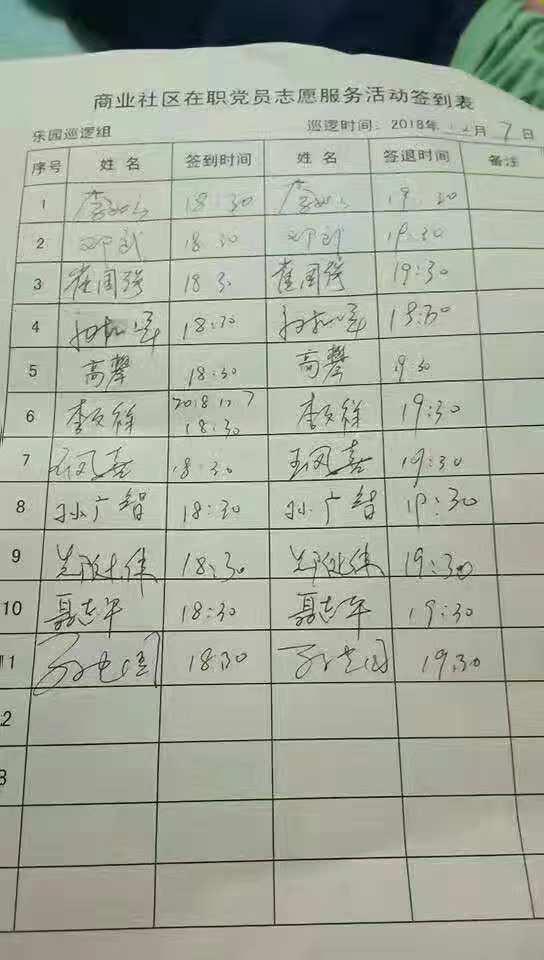 商业社区在职党员志愿服务活动签到表
乐园巡逻组 巡逻时间：2018年12月7日
序号 姓名 签到时间 姓名 签退时间 备注
1 18:30 19:30
2 邓武 18:30 邓武 19:30
3 崔国强 18:30 崔国强 19:30
4 18:30 19:30
5 高攀 18:30 高攀 19:30
6 2018.12.7
18:30 19:30
7 18:30 王凤喜 19:30
8 孙广智 18:30 孙广智 19:30
9 18:30 19:30
10 聂志军 18:30 聂志军 19:30
11 18:30 19:30
2
3